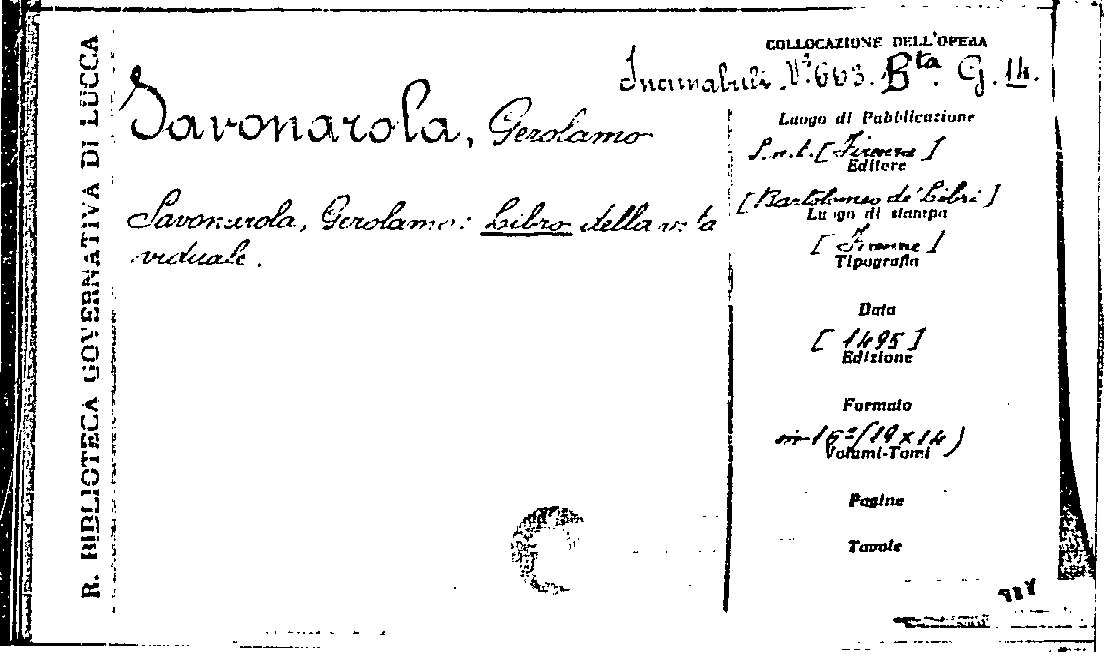 R. BIBLIOTECA GOVERNATIVA DI LUCCA
COLLOCAZIONE DELL'OPERA
Incunabuli. N.º 663. Bta. G. 14.
Savonarola, Gerolamo
Savonarola, Gerolamo: Libro della vita
viduale.
Luogo di Pubblicazione
S.n.t. [Firenze]
Editore
[Bartolomeo de' Libri]
Luogo di stampa
[Firenze]
Tipografia
Data
[1495]
Edizione
Formato
in 16º (19 x 14)
Volumi-Tomi
Pagine
Tavole